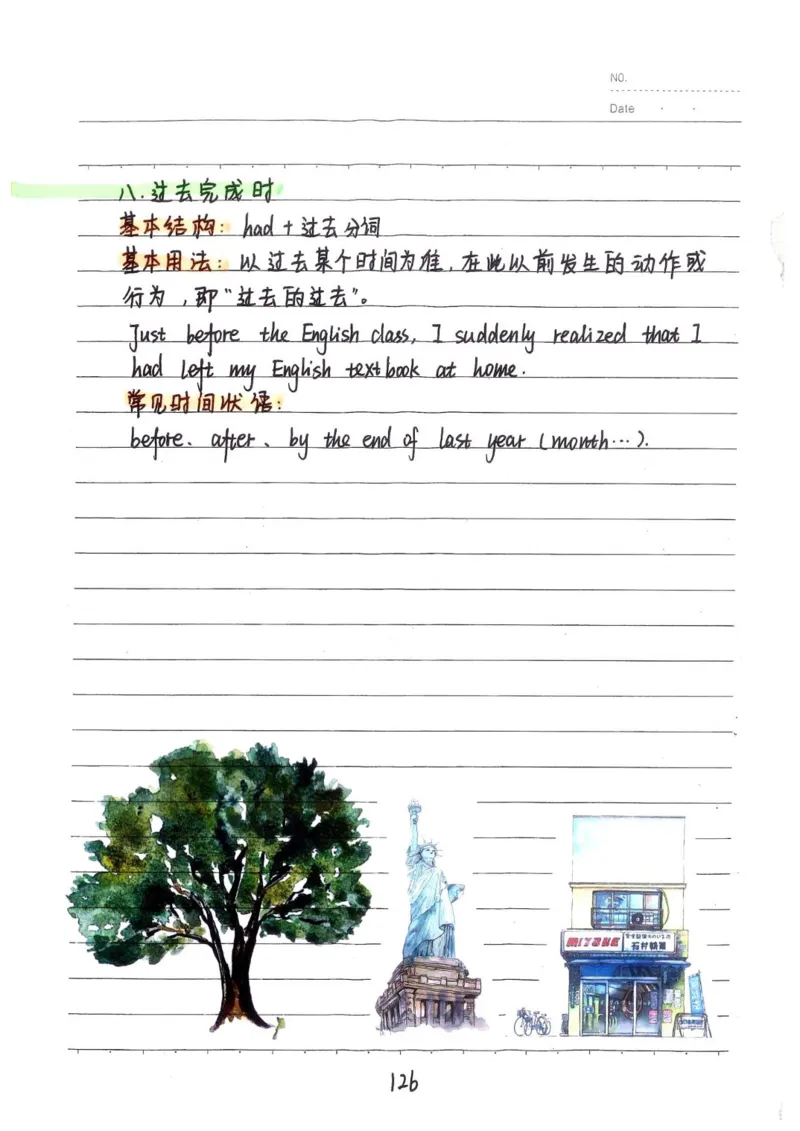 NO.
Date
八.过去完成时
基本结构: had + 过去分词
基本用法: 以过去某个时间为准,在此以前发生的动作或
行为,即“过去的过去”。
Just before the English class, I suddenly realized that I
had left my English textbook at home.
常见时间状语:
before、after、by the end of last year (month…).
石村
126